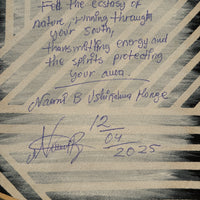 Feel the ecstasy of
nature, running through
your south,
transmitting energy and
the spirits protecting
your aura
Naomi B
12
04
2025